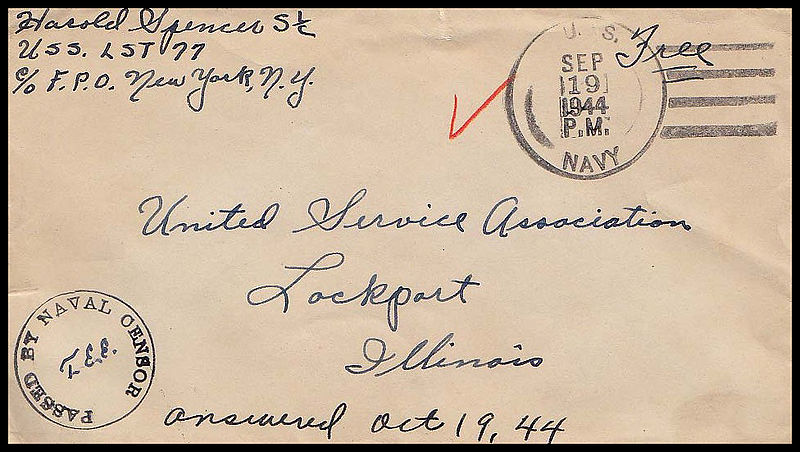 Harold Spencer S1/c
USS. LST 77
c/o F.P.O. New York, N.Y.
Free
U. S.
SEP
19
1944
P.M.
NAVY
United Service Association
Lockport
Illinois
PASSED BY NAVAL CENSOR
answered Oct 19, 44